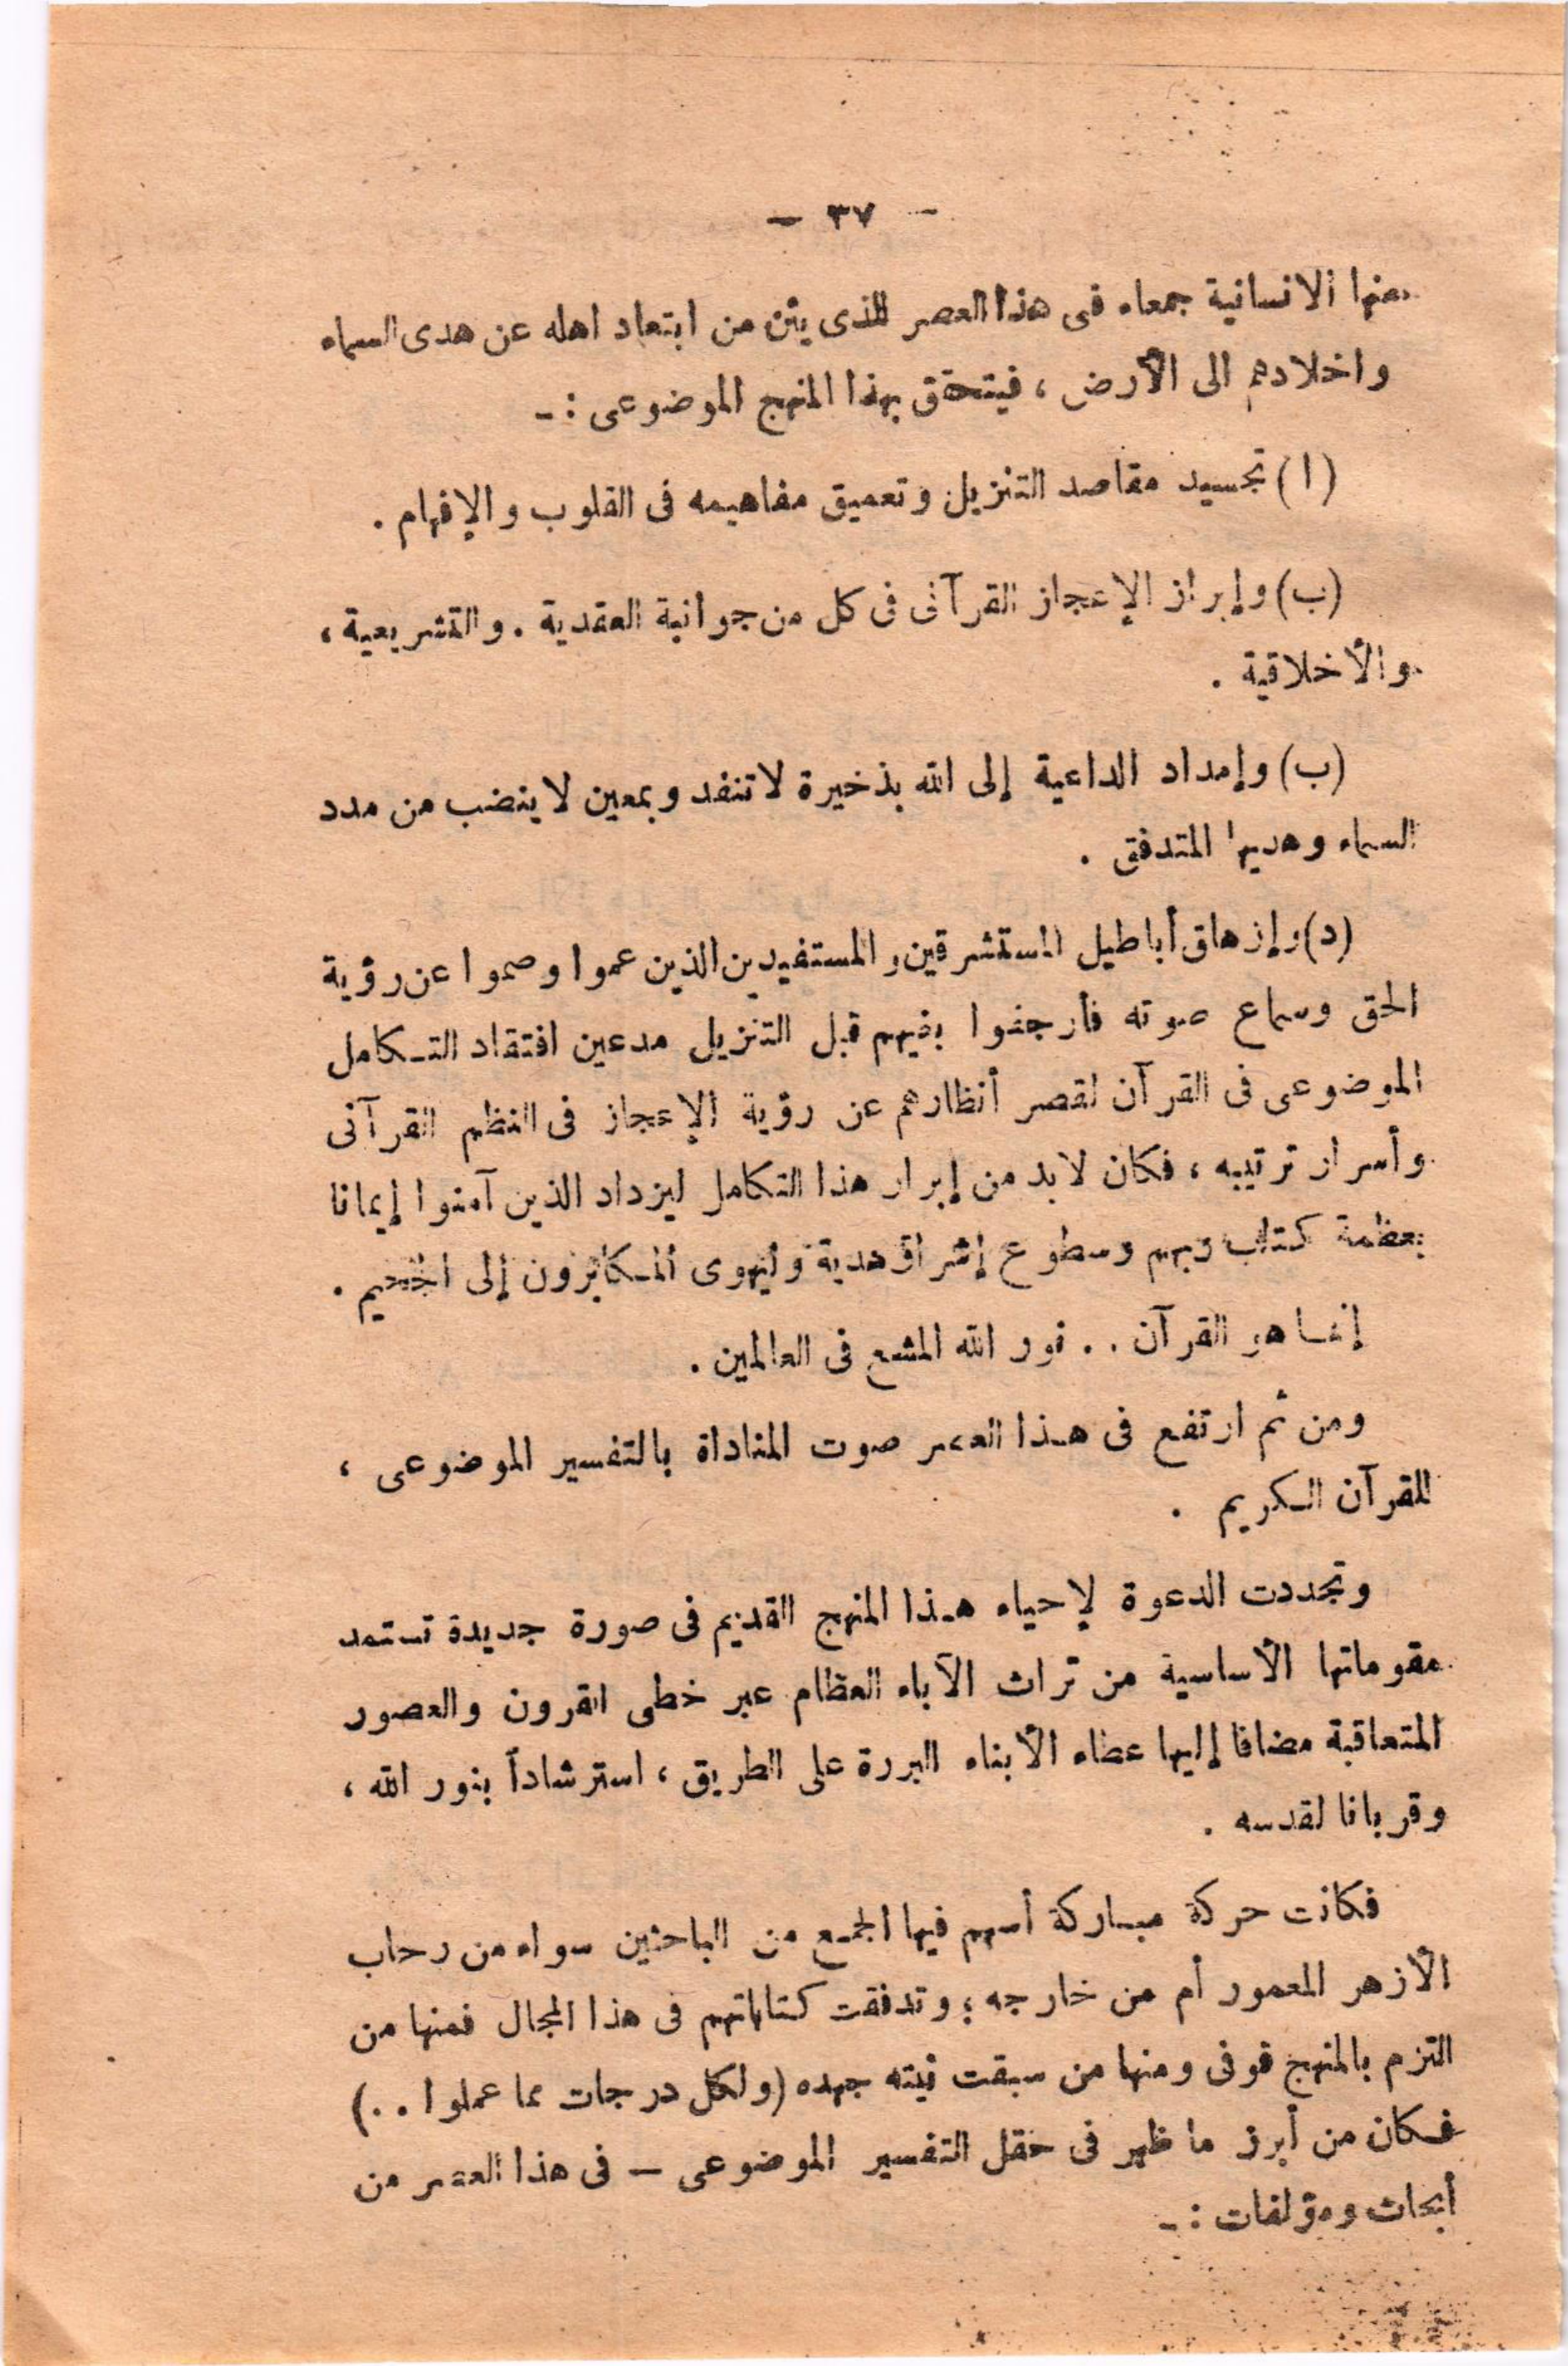 — ٣٧ —
عنها الانسانية جمعاء فى هذا العصر الذى يئن من ابتعاد اهله عن هدى السماء
واخلادهم الى الأرض ، فيتحقق بهذا المنهج الموضوعى : ـ
(ا) تجسيد مقاصد التنزيل وتعميق مفاهيمه فى القلوب والإفهام .
(ب) وإبراز الإعجاز القرآنى فى كل من جوانبة العقدية . والتشريعية ،
والأخلاقية .
(ب) وإمداد الداعية إلى الله بذخيرة لا تنفد وبمعين لا ينضب من مدد
السماء وهديها المتدفق .
(د) وإزهاق أباطيل المستشرقين والمستفيدين الذين عموا وصموا عن رؤية
الحق وسماع صوته فأرجفوا بغيهم قبل التنزيل مدعين افتقاد التكامل
الموضوعى فى القرآن لقصر أنظارهم عن رؤية الإعجاز فى النظم القرآنى
وأسرار ترتيبه ، فكان لابد من إبرار هذا التكامل ليزداد الذين آمنوا إيمانا
بعظمة كتاب ربهم وسطوع إشراق هدية وليهوى المكابرون إلى الجحيم .
إنما هو القرآن . . نور الله المشع فى العالمين .
ومن ثم ارتفع فى هذا العصر صوت المناداة بالتفسير الموضوعى ،
للقرآن الكريم .
وتجددت الدعوة لإحياء هذا المنهج القديم فى صورة جديدة تستمد
مقوماتها الأساسية من تراث الآباء العظام عبر خطى القرون والعصور
المتعاقبة مضافا إليها عطاء الأبناء البررة على الطريق ، استرشاداً بنور الله ،
وقربانا لقدسه .
فكانت حركة مباركة أسهم فيها الجمع من الباحثين سواء من رحاب
الأزهر المعمور أم من خارجه ؛ وتدفقت كتاباتهم فى هذا المجال فمنها من
التزم بالمنهج فوفى ومنها من سبقت نيته جهده (ولكل درجات مما عملوا . .)
فكان من أبرز ما ظهر فى حقل التفسير الموضوعى — فى هذا العصر من
أبحاث ومؤلفات : ـ